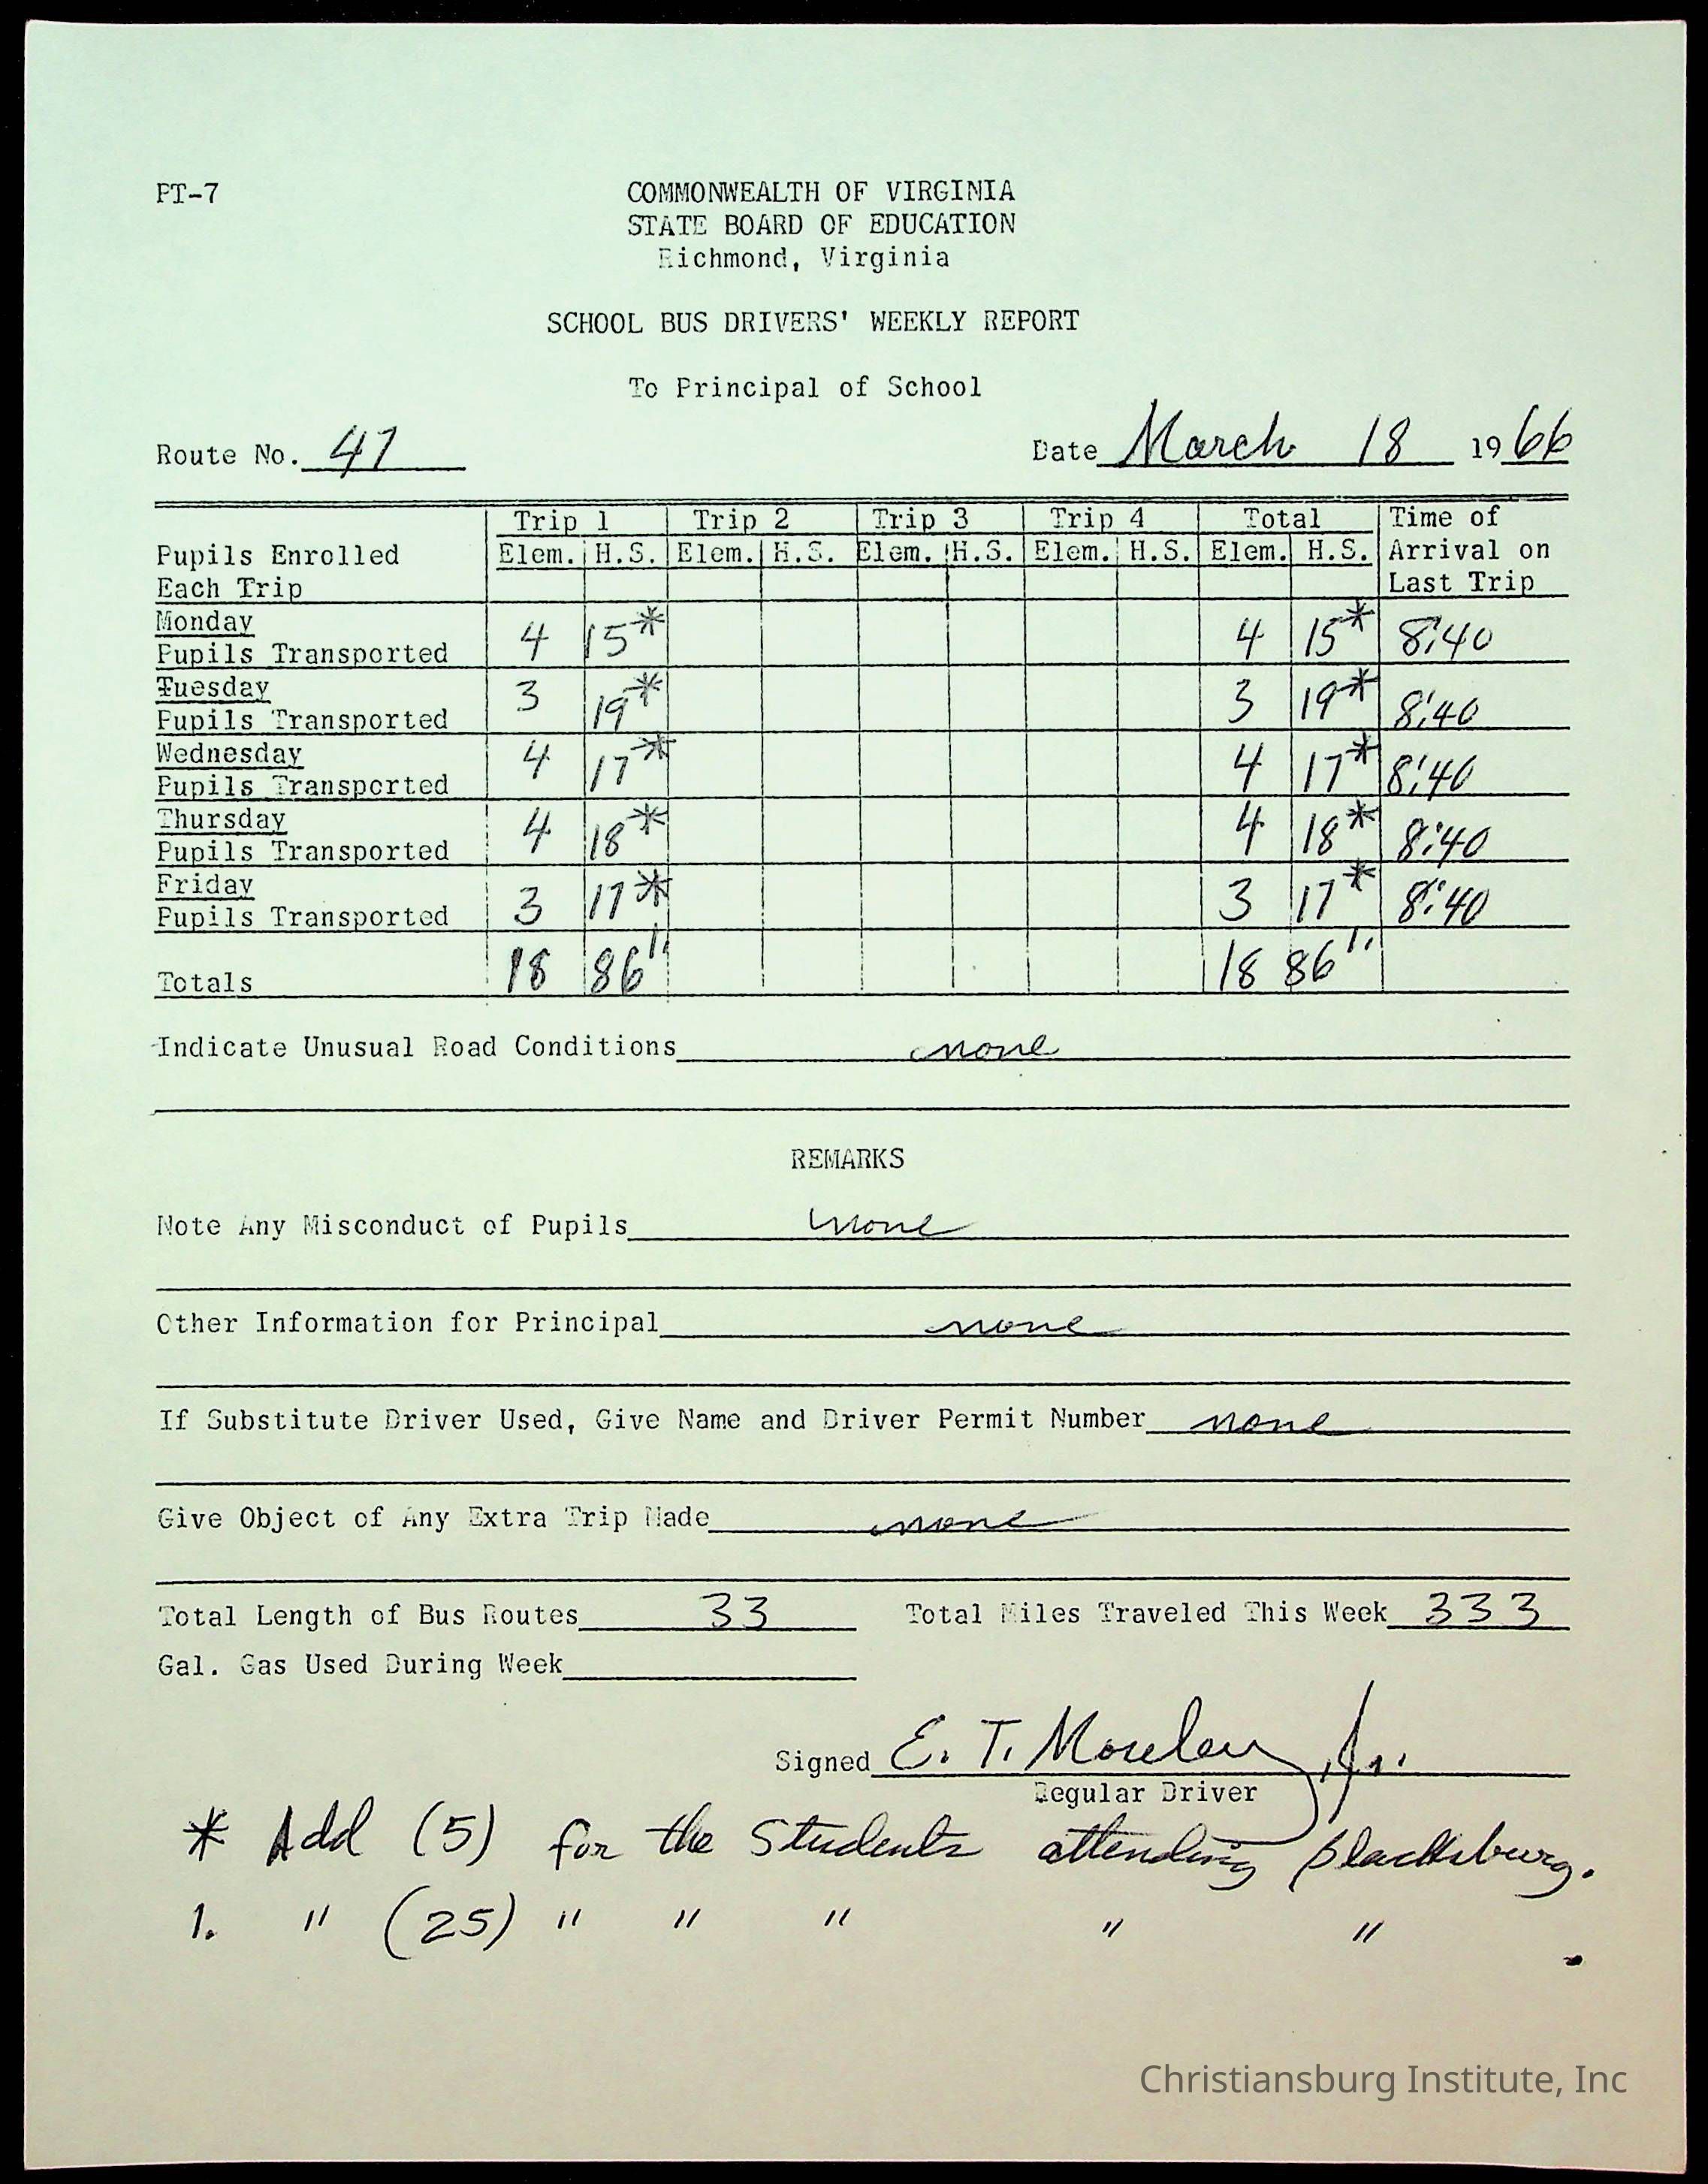 PT-7
COMMONWEALTH OF VIRGINIA
STATE BOARD OF EDUCATION
Richmond, Virginia
SCHOOL BUS DRIVERS' WEEKLY REPORT
To Principal of School
Route No. 47 Date March 18 1966
Trip 1 Trip 2 Trip 3 Trip 4 Total Time of
Pupils Enrolled Elem. H.S. Elem. H.S. Elem. H.S. Elem. H.S. Elem. H.S. Arrival on
Each Trip Last Trip
Monday
Pupils Transported 4 15* 4 15* 8:40
Tuesday
Pupils Transported 3 19* 3 19* 8:40
Wednesday
Pupils Transported 4 17* 4 17* 8:40
Thursday
Pupils Transported 4 18* 4 18* 8:40
Friday
Pupils Transported 3 17* 3 17* 8:40
Totals 18 86 1. 18 86 1.
Indicate Unusual Road Conditions none
REMARKS
Note Any Misconduct of Pupils none
Other Information for Principal none
If Substitute Driver Used, Give Name and Driver Permit Number none
Give Object of Any Extra Trip Made none
Total Length of Bus Routes 33 Total Miles Traveled This Week 333
Gal. Gas Used During Week
Signed E. T. Moseley, Jr.
Regular Driver
* Add (5) for the Students attending Blacksburg.
1. " (25) " " " " "
Christiansburg Institute, Inc